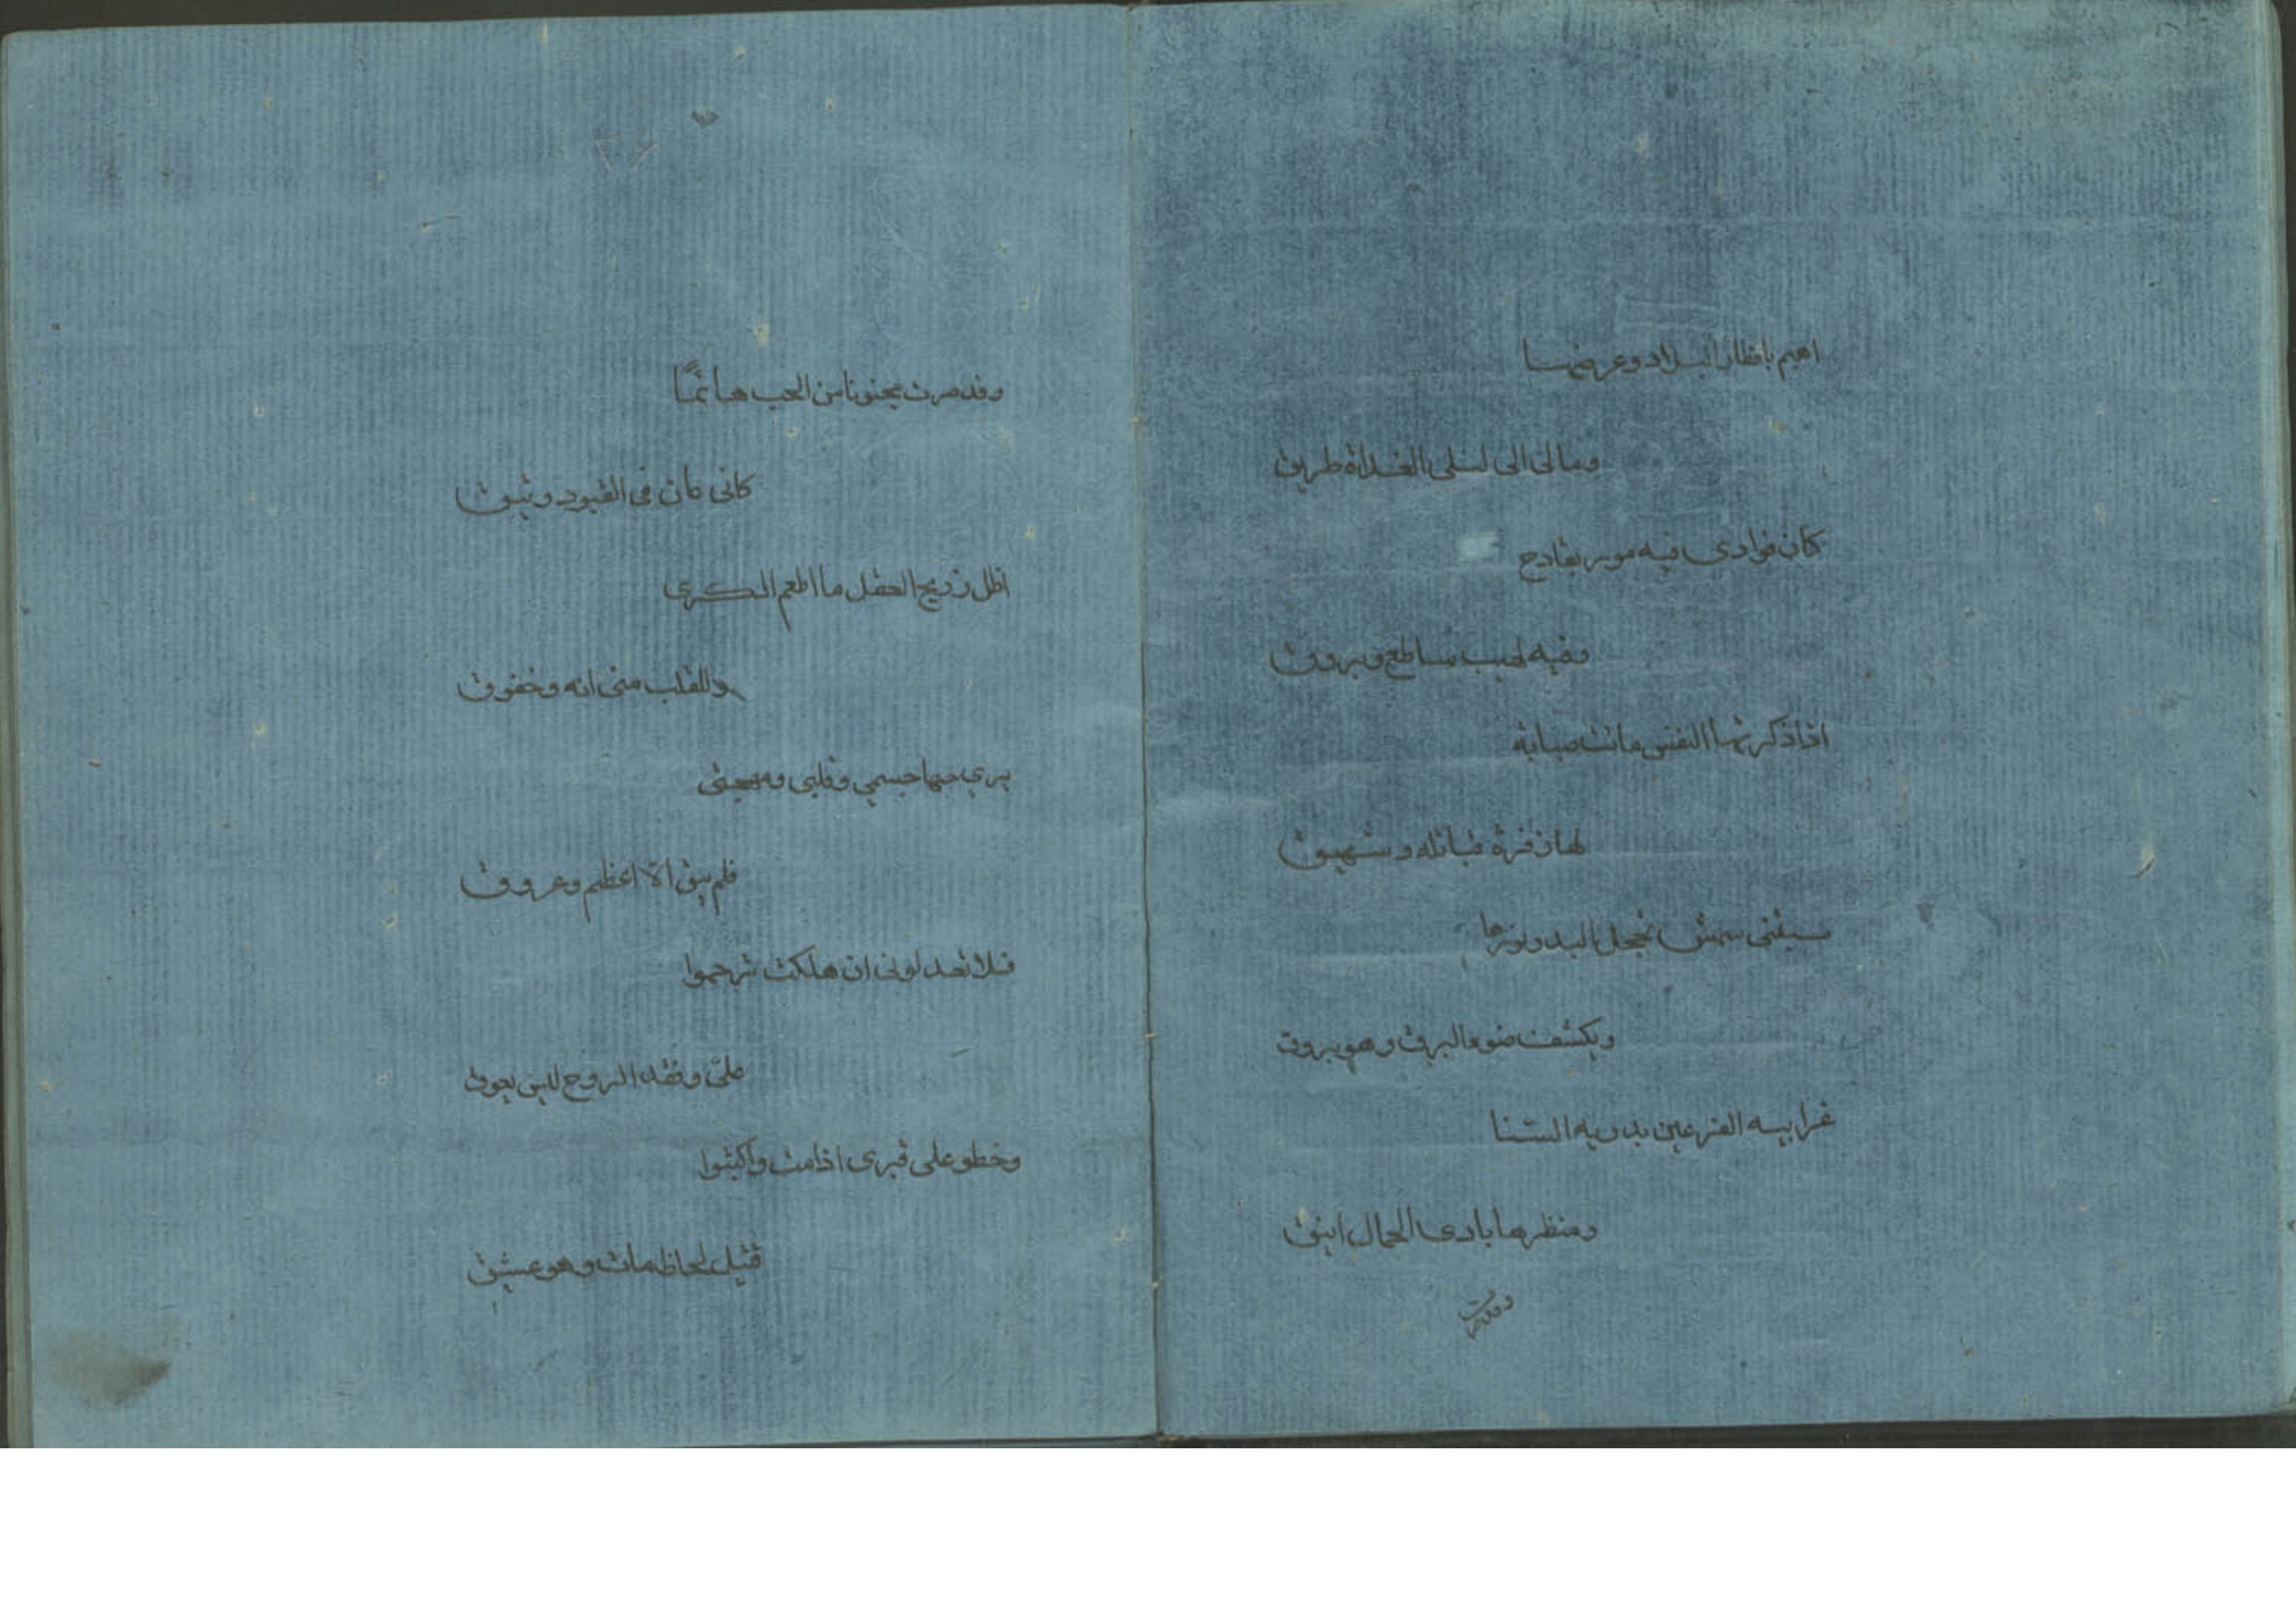 اهيم باقطار البلاد وعرضها
ومالى الى ليلى الغداة طريق
كان فوادى فيه مور بقادح
وفيه لهيب ساطع وبروق
اذا ذكرتها النفس ماتت صبابه
لها زفرة قباتله وشهيق
سبقنى شمس تخجل البدر نورها
ويكشف ضوء البرق وهو بروق
غرابيه الفرعين بدريه السنا
ومنظرها بادى الجمال انيق
وقد صرت
٢٦
وقد صرت مجنونا من الحب هائمًا
كانى عان فى القيود وثيوق
اظل رزيح العقل ما اطعم الكرى
وللقلب منى انه وخفوق
برى حبها جسمي وقلبى ومهجتى
فلم يبق الا اعظم وعروق
فلا تعدلونى ان هلكت ترحموا
علىّ وفقد الروح ليس يعوق
وخطو على قبرى اذا مت واكتبوا
قتيل لحاظ مات وهو عشيق